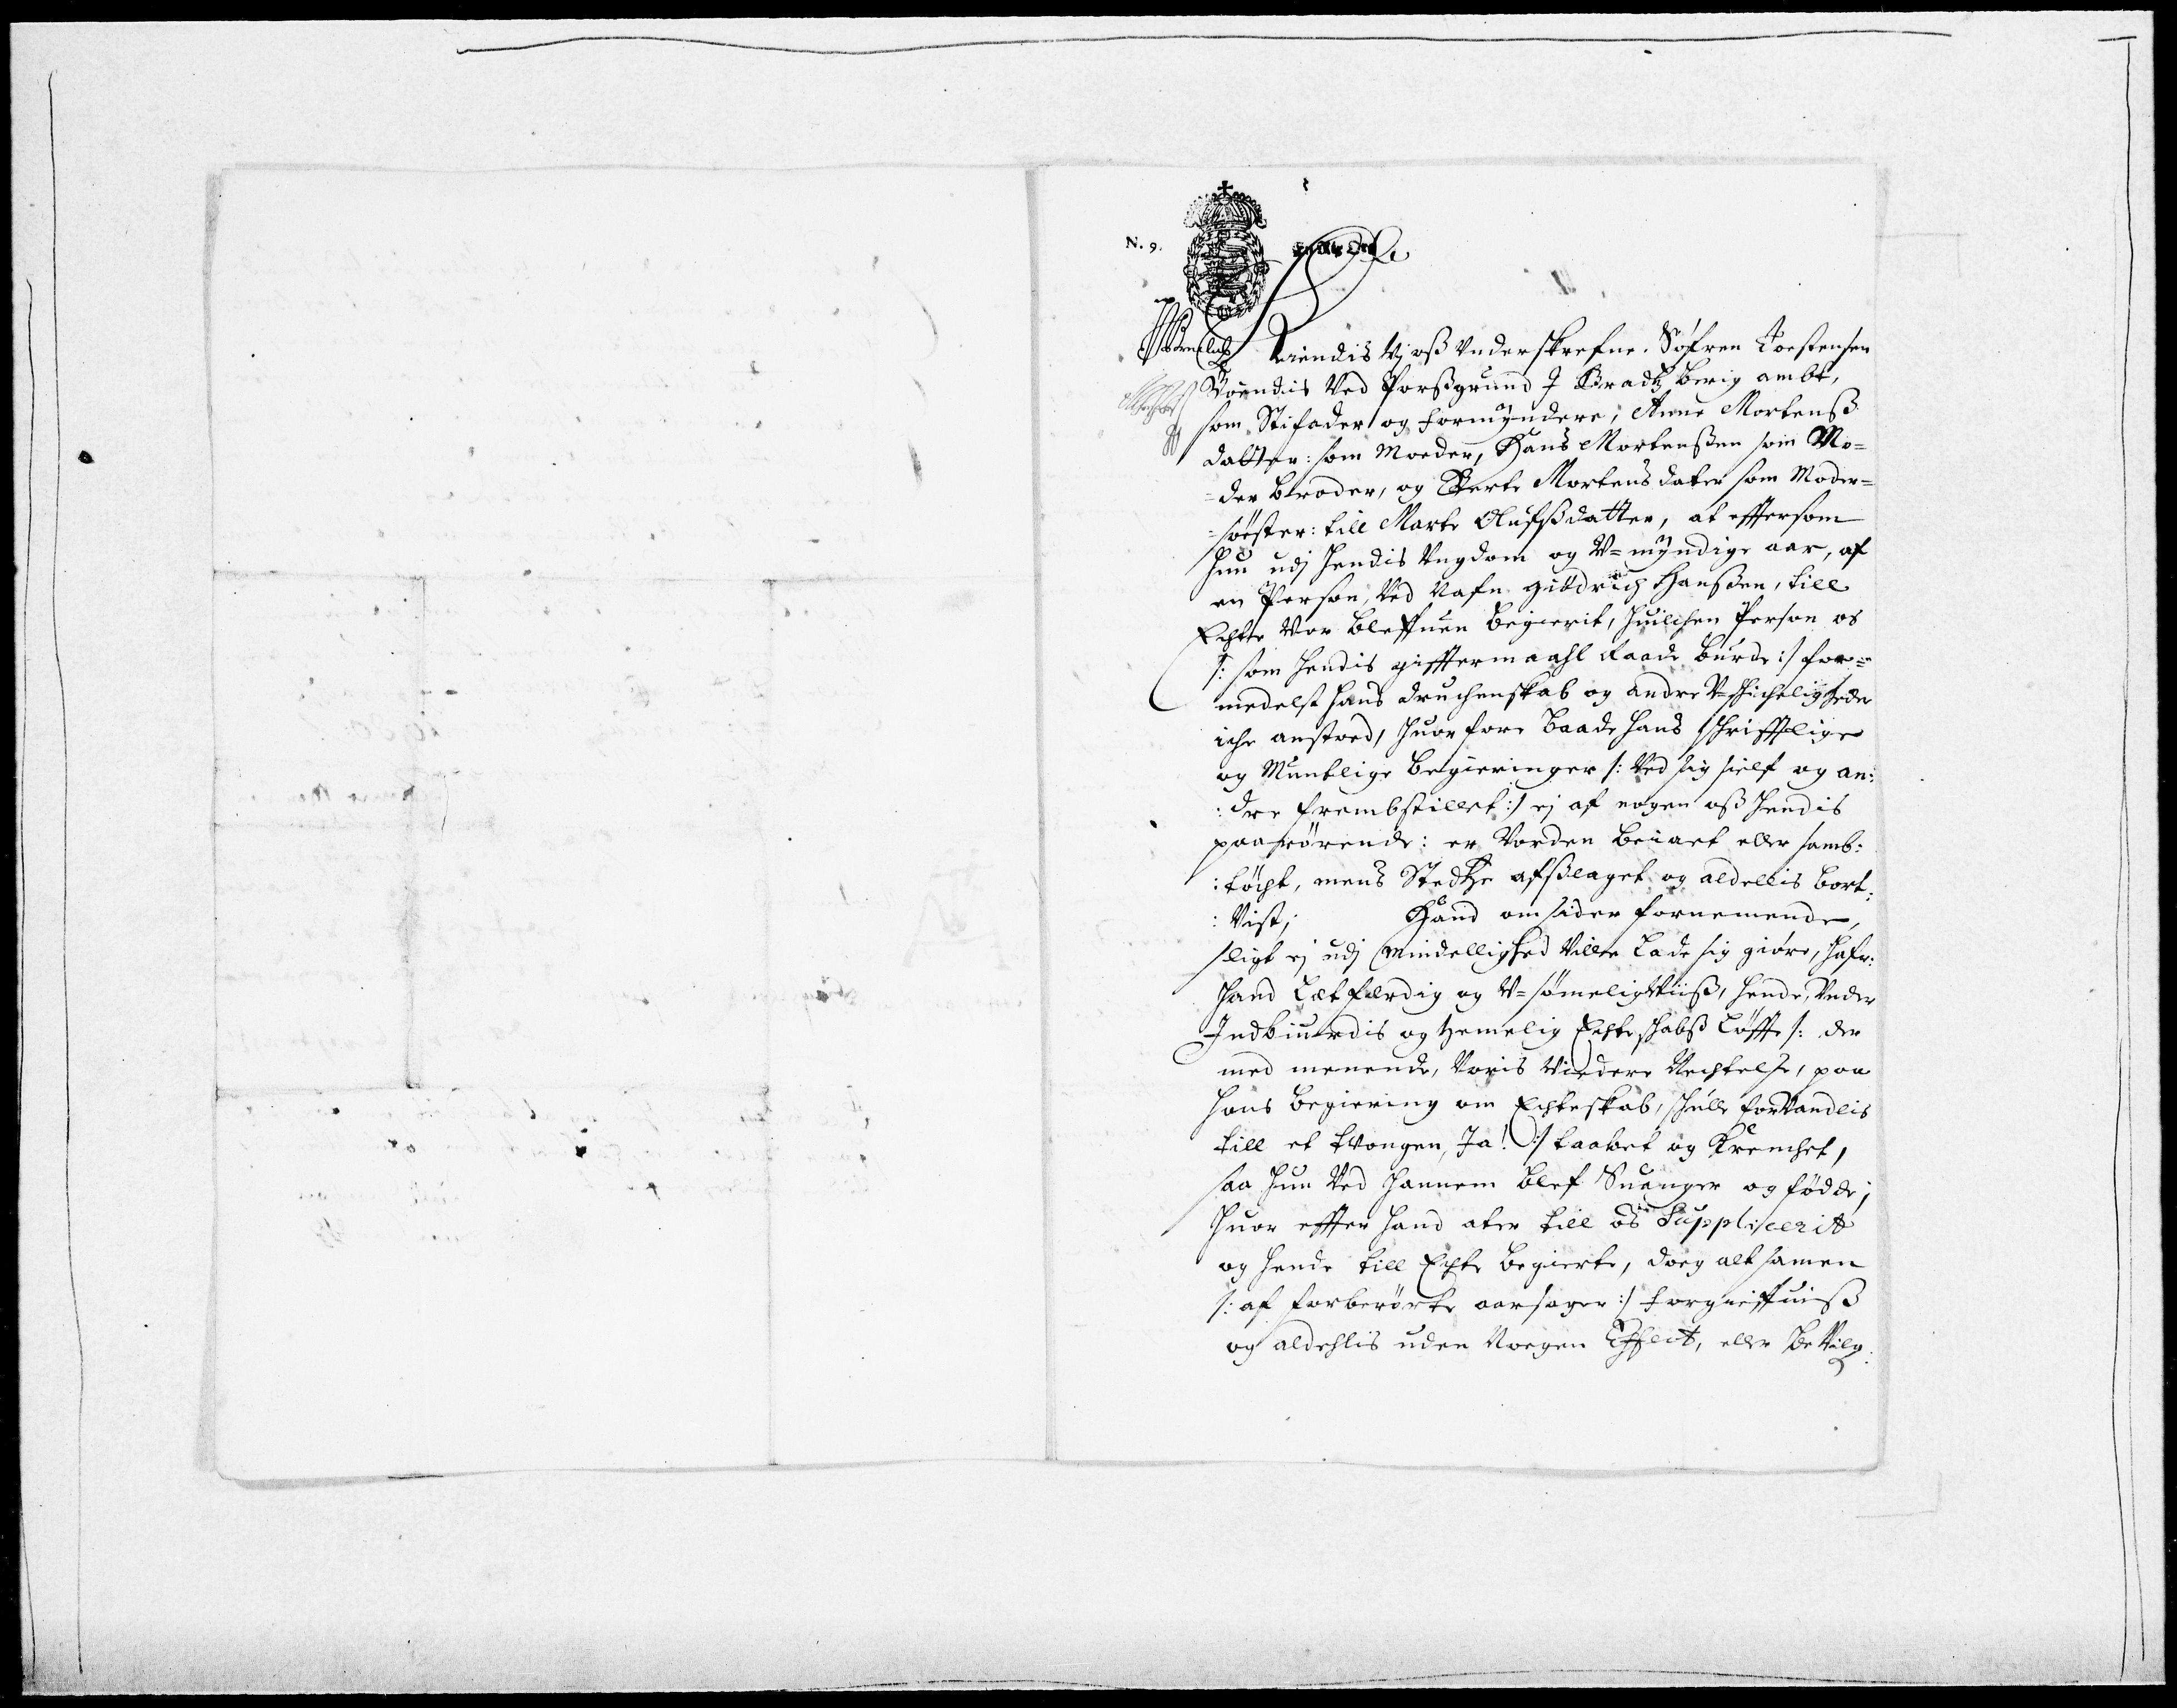 N. 9.
Kiendis Vj oß Underskrefne. Söfren Toestensen
Boendis Ved Porßgrund J Bradtz berig ambt,
som Stifader og formÿndere, Anne Mortenß
datter: som Moeder, Hans Mortenßen som Mo=
=der broder, og Berte Mortens dater som Moder=
=söster: till Marte Olufßdatter, at effersom
hun udj hendis Ungdom og U=mÿndige aar, af
en Person, Ved Nafn giödrich Hanßen, till
Echte Vor bleffuen begierit, huilchen Person os
/: som hendis gifftermaahl Raade burde :/ for=
medelst hans druchenskab og andre U=schicheligheder
iche anstoed, huorfore baade hans schrifftlige
og Muntlige begieringer /: Ved sig sielf og an:
:dre frembstillet :/ ej af nogen oß hendis
paarörende: er Vorden beiaet eller samb:
:töcht, mens Stedtze afßlaget og aldellis bort:
:Vist; Hand omsider fornemende,
sligt ej udj mindellighed Ville Lade sig giöre, hafr:
hand Letfærdig og U=sömeligViiß, hende, Under
Indbiurdis og hemelig Echteschabß Löffte /: der
med menende, Voris Videre Nechtelse, paa
hans begiering om Echteskab, schulle forVandlis
till et tVongen, Ja! :/ taabet og Krenchet,
saa hun Ved hannem blef Suanger og födde;
huor effter hand ater till os Supplicerit
og hende till Echte begierte, doeg alt samen
/: af forberörte aarsager :/ forgieffuiß
og aldehlis uden Noegen Effect, eller beVilg: